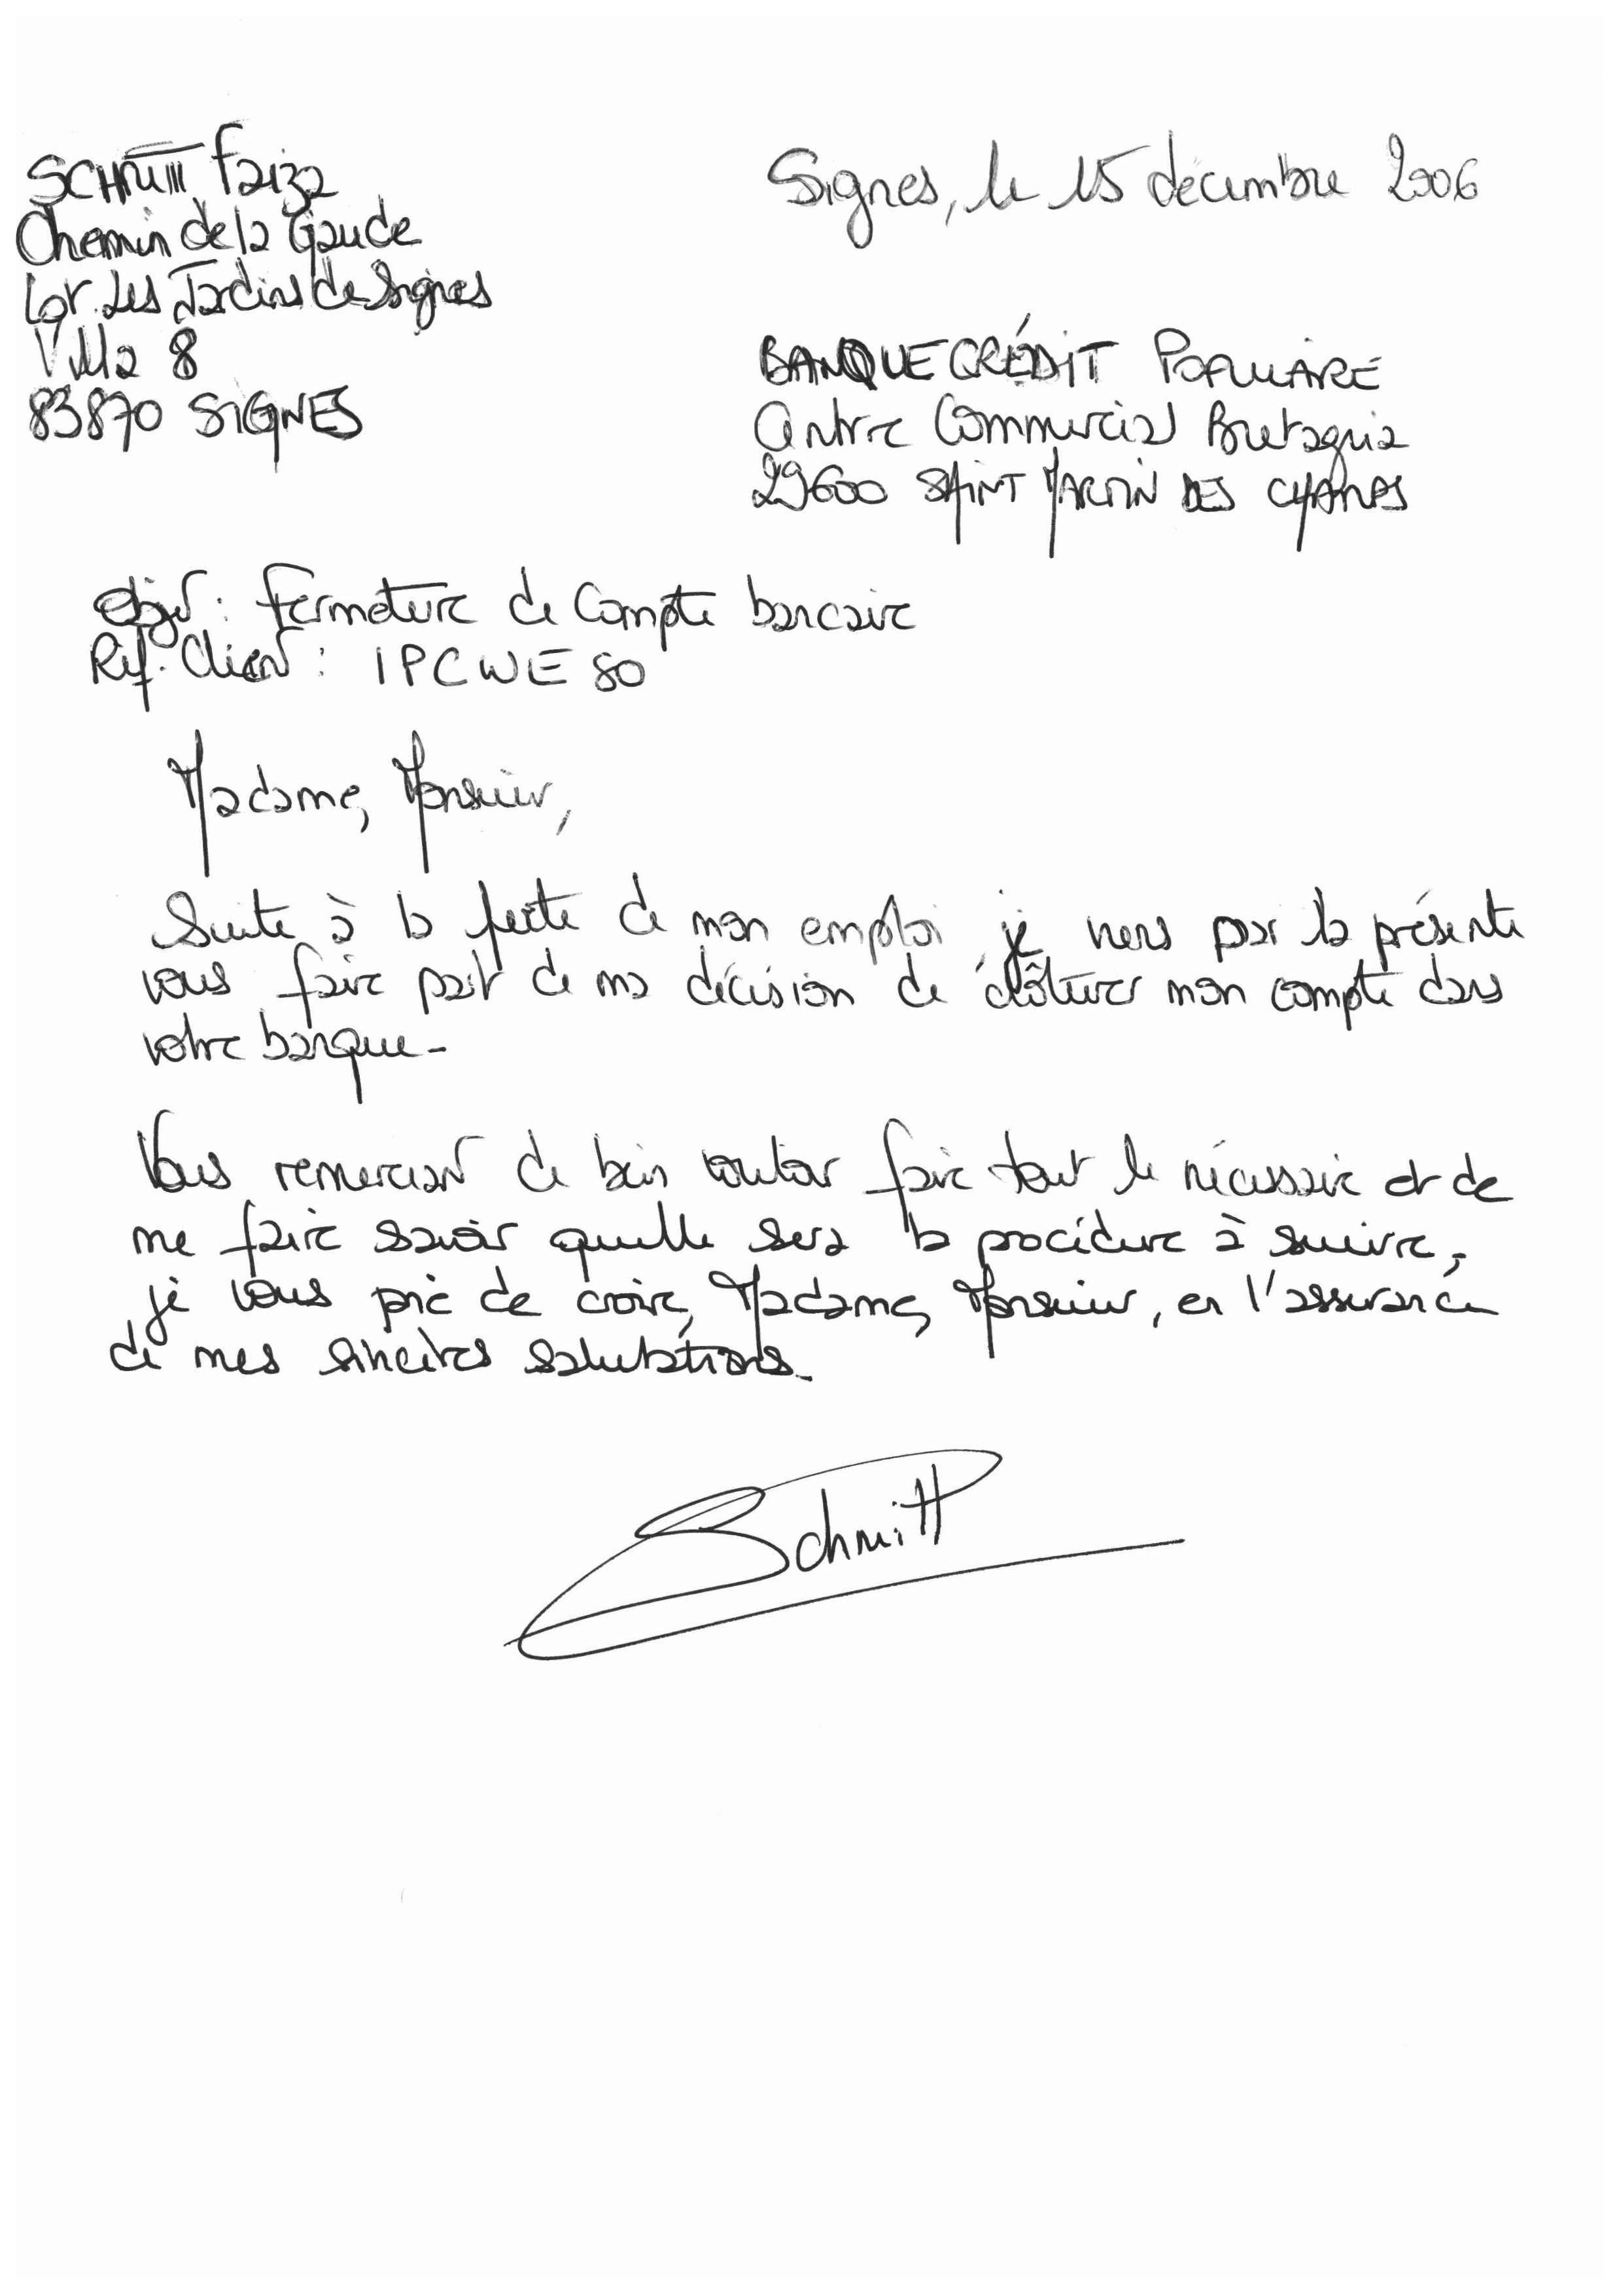 SCHMITT Faiza
Chemin de la Gaude
Lot. Les Jardins de Signes
Villa 8
83870 SIGNES
Signes, le 15 décembre 2006
BANQUE CRÉDIT POPULAIRE
Centre Commercial Bretagnia
29600 SAINT MARTIN DES CHAMPS
Objet : Fermeture de Compte bancaire
Réf. Client : IPCWE80
Madame, Monsieur,
Suite à la perte de mon emploi, je viens par la présente
vous faire part de ma décision de clôturer mon compte dans
votre banque.
Vous remerciant de bien vouloir faire tout le nécessaire et de
me faire savoir quelle sera la procédure à suivre,
je vous prie de croire, Madame, Monsieur, en l'assurance
de mes sincères salutations.
Schmitt